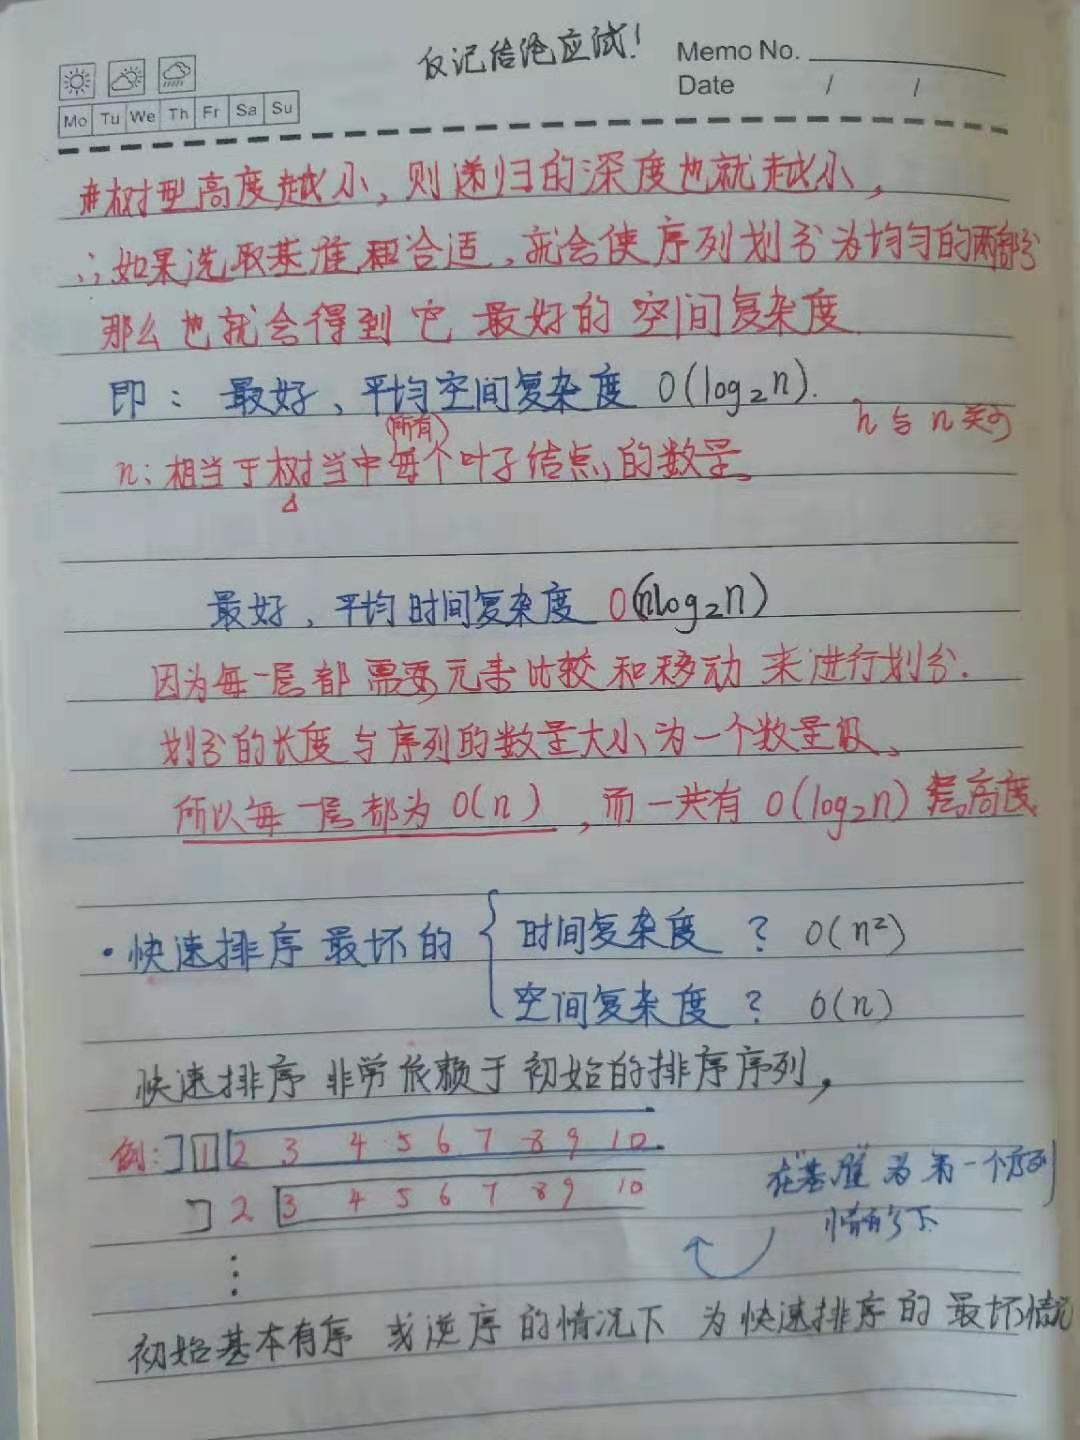 仅记结论应试!
Memo No.
Date / /
Mo Tu We Th Fr Sa Su
#树型高度越小,则递归的深度也就越小,
∴如果选取基准合适,就会使序列划分为均匀的两部分
那么也就会得到它 最好的 空间复杂度.
即: 最好、平均空间复杂度 O(log₂n).
h与n关
(所有)
n:相当于树当中每个叶子结点的数量。
最好,平均时间复杂度 O(nlog₂n)
因为每一层都需要元素比较和移动 来进行划分.
划分的长度与序列的数量大小为一个数量级、
所以每一层都为O(n),而一共有O(log₂n)层高度.
·快速排序最坏的
时间复杂度 ? O(n²)
空间复杂度 ? O(n)
快速排序 非常依赖于初始的排序序列,
例: 1 2 3 4 5 6 7 8 9 10
2 3 4 5 6 7 8 9 10
在"基准"为第一个序列
情况下
⋮
初始基本有序 或逆序的情况下 为快速排序的最坏情况